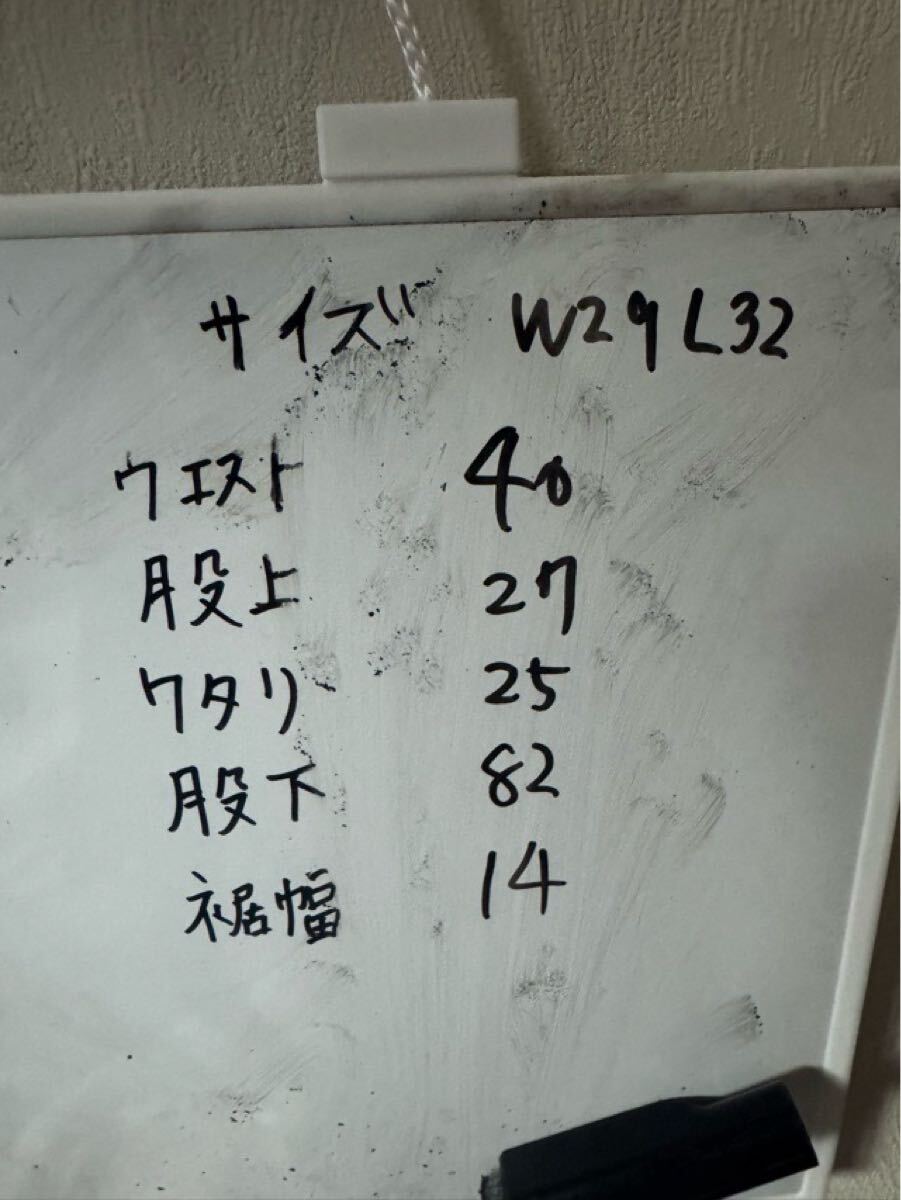 サイズ W29L32
ウエスト 40
股上 27
ワタリ 25
股下 82
裾幅 14